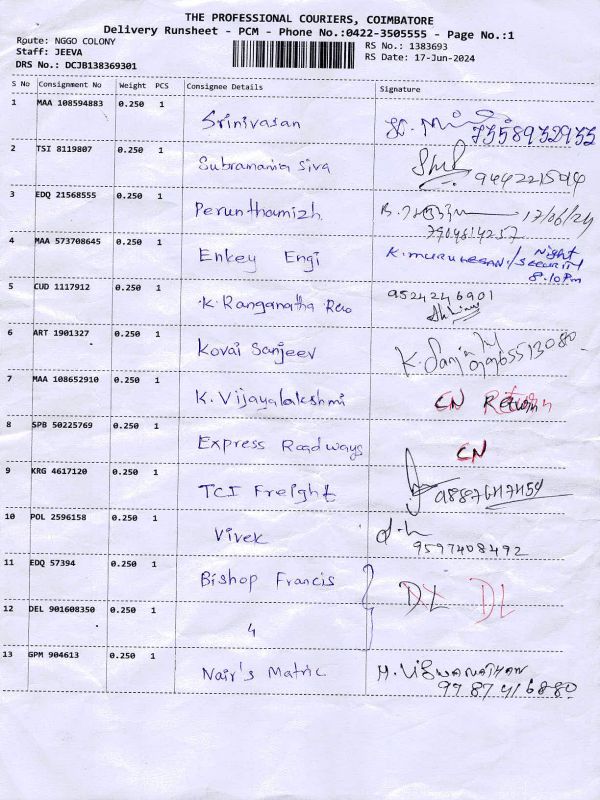 THE PROFESSIONAL COURIERS, COIMBATORE
Delivery Runsheet - PCM - Phone No.:0422-3505555 - Page No.:1
Route: NGGO COLONY RS No.: 1383693
Staff: JEEVA RS Date: 17-Jun-2024
DRS No.: DCJB138369301
S No Consignment No Weight PCS Consignee Details Signature
1 MAA 108594883 0.250 1 Srinivasan 7358932933
2 TSI 8119807 0.250 1 Subramania Siva
3 EDQ 21568555 0.250 1 Perunthamizh 17/06/24
7904814257
4 MAA 573708645 0.250 1 Enkey Engi K. MURUGESAN / Night
SECURITY
8.10 Pm
5 CUD 1117912 0.250 1 K. Ranganatha Rao 9524246901
6 ART 1901327 0.250 1 Kovai Sanjeev K. Sanjeev
7 MAA 108652910 0.250 1 K. Vijayalakshmi CN Return
8 SPB 50225769 0.250 1 Express Roadways CN
9 KRG 4617120 0.250 1 TCI Freight
10 POL 2596158 0.250 1 Vivek
9597408492
11 EDQ 57394 0.250 1 Bishop Francis DL DL
12 DEL 901608350 0.250 1 4
13 GPM 904613 0.250 1 Nair's Matric M. VISWANATHAN